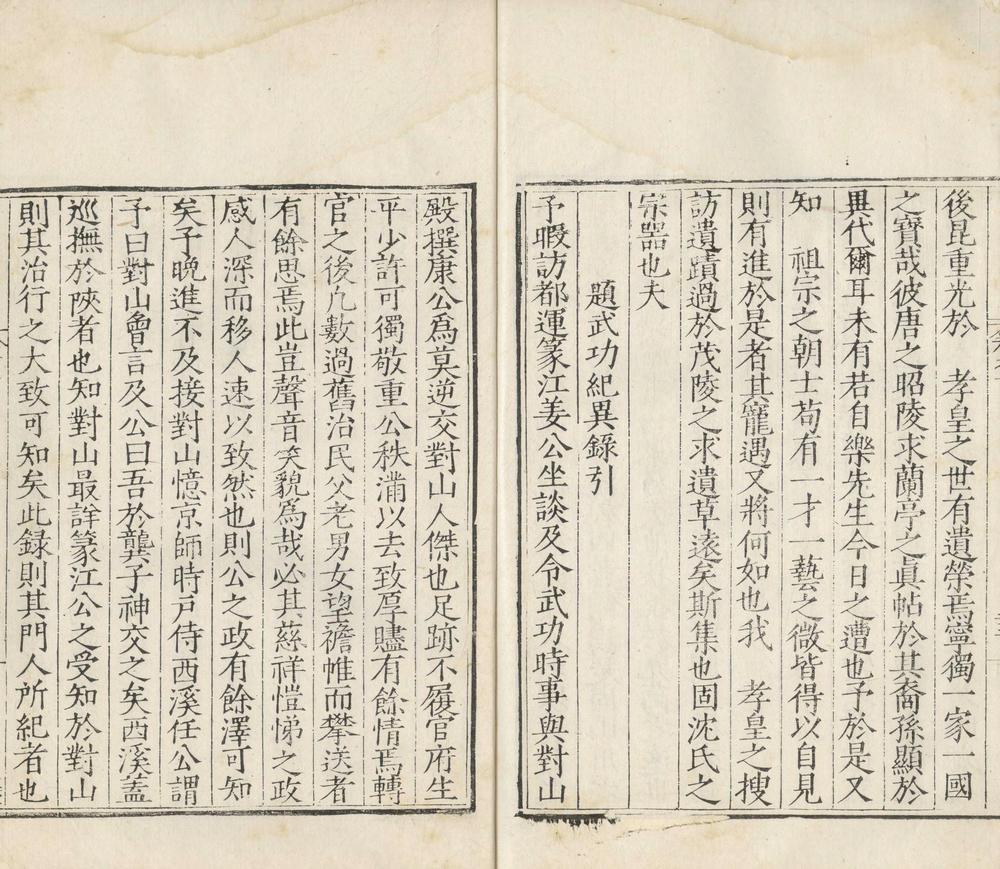 後昆重光於　孝皇之世有遺榮焉寧獨一家一國
之寶哉彼唐之昭陵求蘭亭之眞帖於其裔孫顯於
異代爾耳未有若自樂先生今日之遭也予於是又
知　祖宗之朝士苟有一才一藝之微皆得以自見
則有進於是者其寵遇又將何如也我　孝皇之搜
訪遺蹟過於茂陵之求遺草逺矣斯集也固沈氏之
宗器也夫
題武功紀異錄引
予暇訪都運篆江姜公坐談及令武功時事與對山
殿撰康公爲莫逆交對山人傑也足跡不履官府生
平少許可獨敬重公秩滿以去致厚贐有餘情焉轉
官之後凢數過舊治民父老男女望襜帷而攀送者
有餘思焉此豈聲音笑貌爲哉必其慈祥愷悌之政
感人深而移人速以致然也則公之政有餘澤可知
矣予晚進不及接對山憶京師時戸侍西溪任公謂
予曰對山會言及公曰吾於龔子神交之矣西溪蓋
廵撫於陜者也知對山最詳篆江公之受知於對山
則其治行之大致可知矣此録則其門人所紀者也